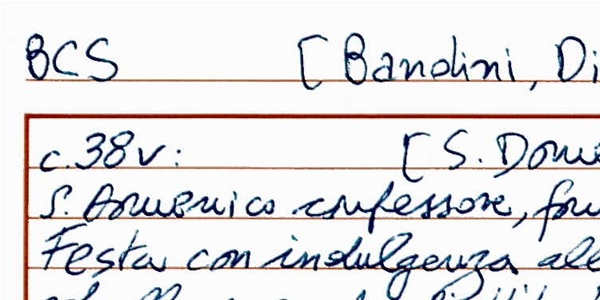 BCS [Bandini, Di
c.38v: [S. Dome
S. Domenico confessore, fon
Festa con indulgenza alle